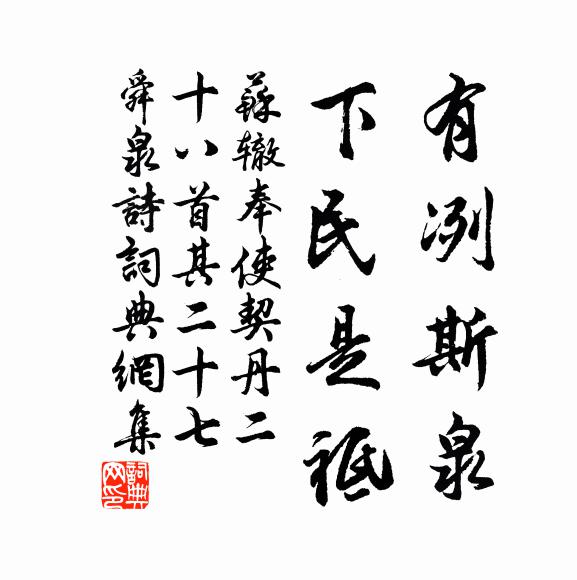 有冽斯泉
下民是祗
蘇轍奉使契丹二
十八首其二十七
舜泉詩詞典網集
詞典網印